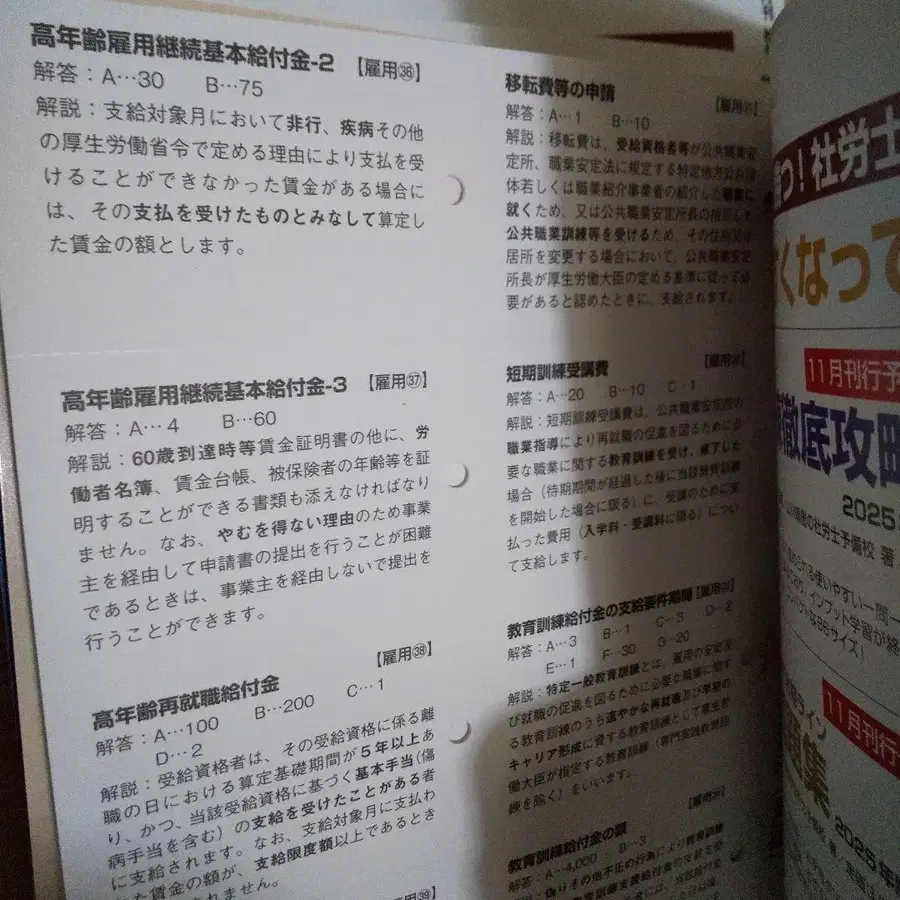 高年齢雇用継続基本給付金-2 【雇用㊱】
解答：A…30 B…75
解説：支給対象月において非行、疾病その他
の厚生労働省令で定める理由により支払を受
けることができなかった賃金がある場合に
は、その支払を受けたものとみなして算定し
た賃金の額とします。
高年齢雇用継続基本給付金-3 【雇用㊲】
解答：A…4 B…60
解説：60歳到達時等賃金証明書の他に、労
働者名簿、賃金台帳、被保険者の年齢等を証
明することができる書類も添えなければなり
ません。なお、やむを得ない理由のため事業
主を経由して申請書の提出を行うことが困難
であるときは、事業主を経由しないで提出を
行うことができます。
高年齢再就職給付金 【雇用㊳】
解答：A…100 B…200 C…1
D…2
解説：受給資格者は、その受給資格に係る離
職の日における算定基礎期間が5年以上あ
り、かつ、当該受給資格に基づく基本手当(傷
病手当を含む）の支給を受けたことがある者
に支給されます。なお、支給対象月に支払わ
た賃金の額が、支給限度額以上であるとき
されません。
【雇用㊴】
移転費等の申請 【雇用
解答：A…1 B…10
解説：移転費は、受給資格者等が公共職業安
定所、職業安定法に規定する特定地方公共団
体若しくは職業紹介事業者の紹介した職業に
就くため、又は公共職業安定所長の指示した
公共職業訓練等を受けるため、その住所又は
居所を変更する場合において、公共職業安定
所長が厚生労働大臣の定める基準に従って必
要があると認めたときに、支給されます。
短期訓練受講費 【雇用
解答：A…20 B…10 C…1
解説：短期訓練受講費は、公共職業安定所の
職業指導により再就職の促進を図るために必
要な職業に関する教育訓練を受け、修了した
場合（待期期間が経過した後に当該教育訓練
を開始した場合に限る）に、受講のために支
払った費用（入学料・受講料に限る）につい
て支給します。
教育訓練給付金の支給要件期間 【雇用
解答：A…3 B…1 C…3 D…2
E…1 F…30 G…20
解説：特定一般教育訓練とは、雇用の安定及
び就職の促進を図るために必要な職業に関す
る教育訓練のうち速やかな再就職及び早期の
キャリア形成に資する教育訓練として厚生労
働大臣が指定する教育訓練（専門実践教育訓
練を除く）をいいます。
【雇用
教育訓練給付金の額
解答：A…4,000 B…3
解説：偽りその他不正の行為により教育訓練
教育訓練支援給付金の支給を受
には、当該給付金
つ！社労士
くなって
11月刊行予
徹底攻略
2025
の社労士予備校 著
使いやすい一問一
インプット学習が終
B6サイズ！
11月刊行
ライン
題集
2025年